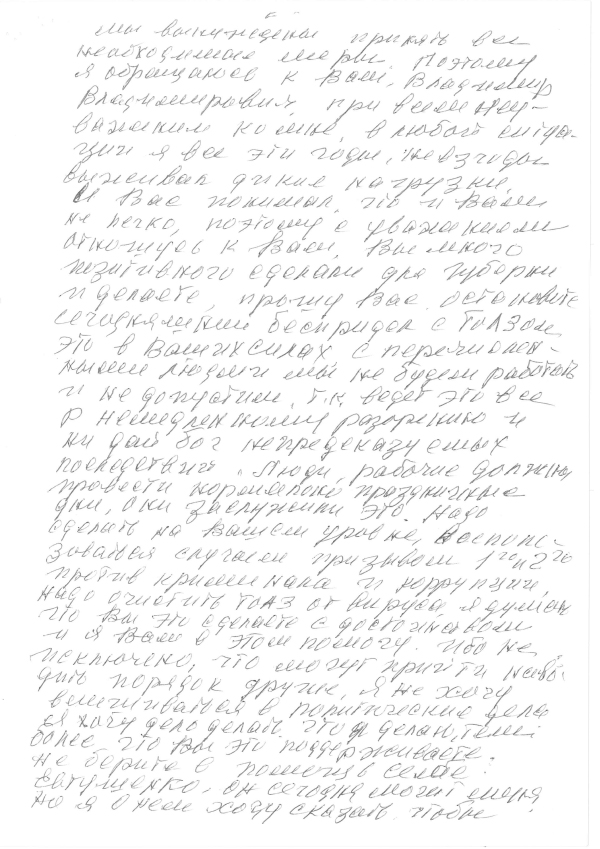 мы вынуждены принять все
необходимые меры. Поэтому
я обращаюсь к Вам, Владимир
Владимирович, при всем неу-
важении ко мне, в любой ситуа-
ции я все эти годы,
выживал дикие нагрузки,
и Вас понимал, что и Вам
не легко, поэтому с уважением
отношусь к Вам, Вы много
позитивного сделали для губернии
и делаете, прошу Вас остановите
сегодняшний беспридел с ТоАЗом
это в Ваших силах, с перечислен-
ными людьми мы не будем работать
и не допустим, т.к. ведет это все
к немедленному разорению и
ни дай бог непредсказуемых
последствий. Люди, рабочие должны
провести нормально праздничные
дни, они заслужили это. Надо
сделать на Вашем уровне, воспользо-
зоваться случаем призывом 1го и 2го
против криминала и коррупции,
надо очистить ТоАЗ от вируса, я думаю
что Вы это сделаете с достоинством
и я Вам в этом помогу. Ибо не
исключено, что могут прийти наво-
дить порядок другие, я не хочу
вмешиваться в политические дела
я хочу дело делать, что и делаю, тем
более что Вы это поддерживаете.
Не берите в помощь себе
Евтушенко, он сегодня могит
но я о нем хочу сказать чтобы